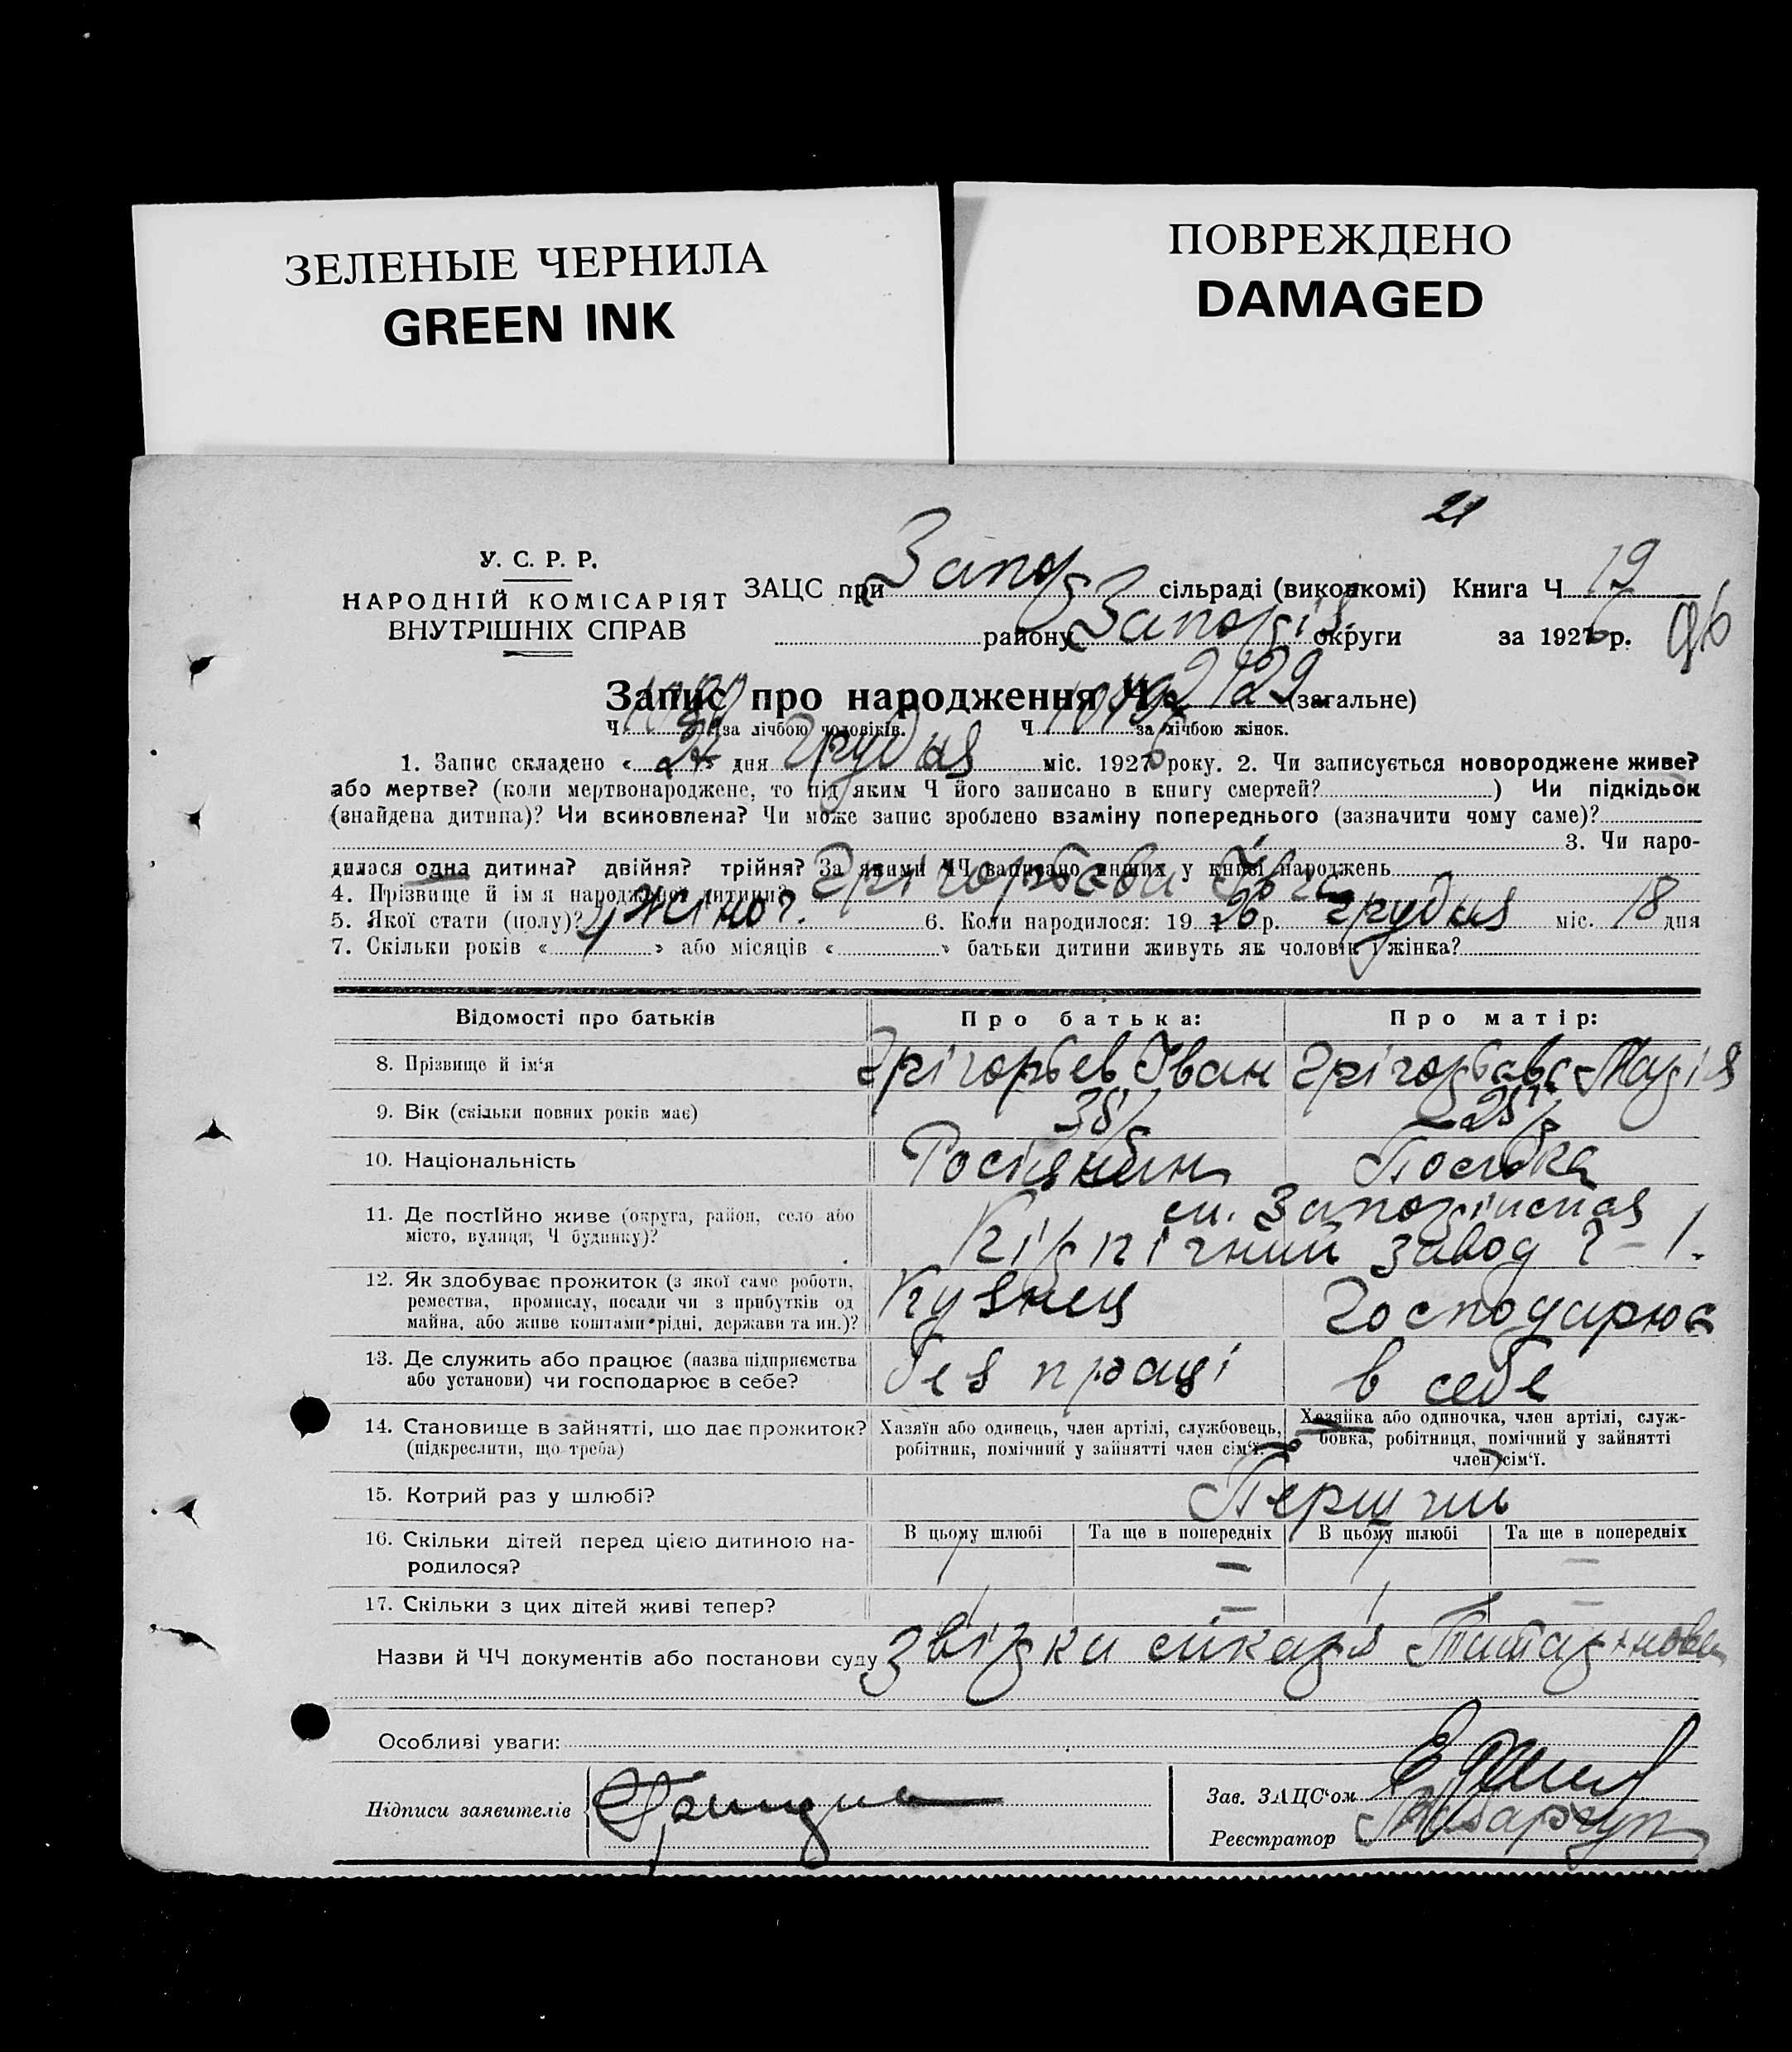 ЗЕЛЕНЫЕ ЧЕРНИЛА
GREEN INK
ПОВРЕЖДЕНО
DAMAGED
21
У. С. Р. Р.
НАРОДНІЙ КОМІСАРІЯТ
ВНУТРІШНІХ СПРАВ
ЗАЦС при Запор сільраді (виконкомі) Книга Ч 19
району Запоріз округи за 1926 р. 96
Запис про народження Ч 2129 (загальне)
Ч за лічбою чоловіків. Ч за лічбою жінок.
1. Запис складено « » дня Грудня міс. 1926 року. 2. Чи записується новороджене живе?
або мертве? (коли мертвонароджене, то під яким Ч його записано в книгу смертей? ) Чи підкідьок
(знайдена дитина)? Чи всиновлена? Чи може запис зроблено взаміну попереднього (зазначити чому саме)?
3. Чи наро-
дилася одна дитина? двійня? трійня? За якими ЧЧ записано инших у книзі народжень
4. Прізвище й ім'я народженої дитини?
5. Якої стати (полу)? жіноч. 6. Коли народилося: 1926 р. грудня міс. 18 дня
7. Скільки років « » або місяців « » батьки дитини живуть як чоловік і жінка?
Відомості про батьків Про батька: Про матір:
8. Прізвище й ім'я Грігорьев Іван Грігорьева Марія
9. Вік (скільки повних років має) 38 25
10. Національність Росіянин
11. Де постійно живе (округа, район, село або
місто, вулиця, Ч будинку)? Кірпічний завод Ч-1.
12. Як здобуває прожиток (з якої саме роботи,
ремества, промислу, посади чи з прибутків од
майна, або живе коштами рідні, держави та ин.)? Кузнец Господарює
13. Де служить або працює (назва підприємства
або установи) чи господарює в себе? без праці в себе
14. Становище в зайнятті, що дає прожиток?
(підкреслити, що треба)
Хазяїн або одинець, член артілі, службовець,
робітник, помічний у зайнятті член сім'ї.
Хазяйка або одиночка, член артілі, служ-
бовка, робітниця, помічний у зайнятті
член сім'ї.
15. Котрий раз у шлюбі? Перший
16. Скільки дітей перед цією дитиною на-
родилося?
В цьому шлюбі Та ще в попередніх В цьому шлюбі Та ще в попередніх
1 — 1 —
17. Скільки з цих дітей живі тепер? 1 — 1 —
Назви й ЧЧ документів або постанови суду
Особливі уваги:
Підписи заявителів
Зав. ЗАЦС'ом
Реєстратор